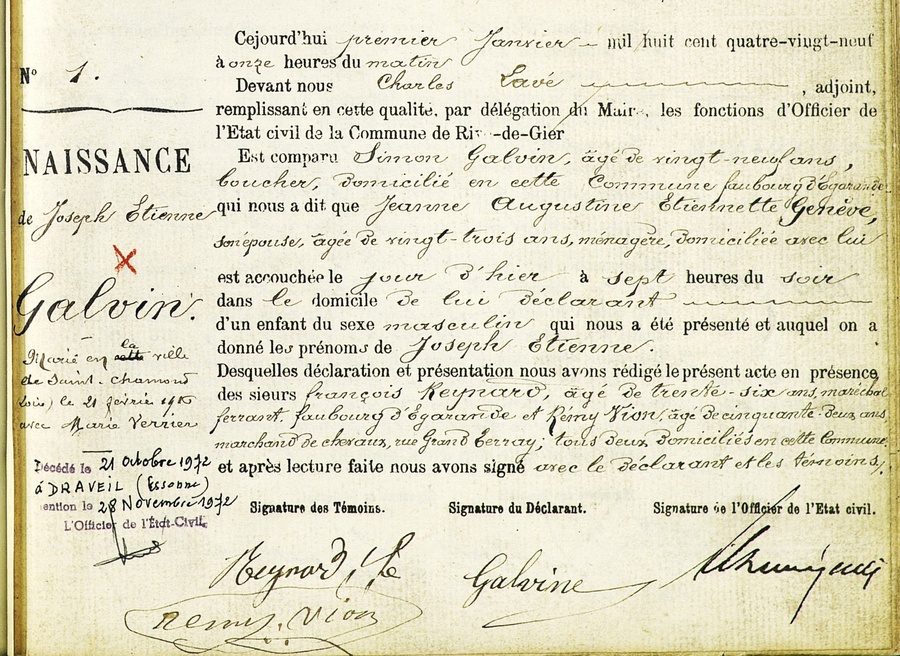 N° 1.
NAISSANCE
de Joseph Etienne
X
Galvin.
Marié en cette la ville
de Saint-Chamond
(Loire) le 21 février
avec Marie Verrier
Décédé le 21 Octobre 1972
à DRAVEIL (Essonne)
mention le 28 Novembre 1972
L'Officier de l'État-Civil,
Cejourd'hui premier Janvier mil huit cent quatre-vingt-neuf
à onze heures du matin
Devant nous Charles Lavé, adjoint,
remplissant en cette qualité, par délégation du Maire, les fonctions d'Officier de
l'Etat civil de la Commune de Rive-de-Gier
Est comparu Simon Galvin, âgé de vingt-neuf ans,
boucher, domicilié en cette Commune faubourg d'Egarande
qui nous a dit que Jeanne Augustine Etiennette Genève,
son épouse, âgée de vingt-trois ans, ménagère, domiciliée avec lui
est accouchée le jour d'hier à sept heures du soir
dans le domicile de lui déclarant
d'un enfant du sexe masculin qui nous a été présenté et auquel on a
donné les prénoms de Joseph Etienne.
Desquelles déclaration et présentation nous avons rédigé le présent acte en présence
des sieurs françois Reynard, âgé de trente-six ans, maréchal
ferrant, faubourg d'Egarande et Rémy Vion, âgé de cinquante-deux ans
marchand de chevaux, rue Grand Ferray; tous deux domiciliés en cette Commune.
et après lecture faite nous avons signé avec le déclarant et les témoins.
Signature des Témoins. Signature du Déclarant. Signature de l'Officier de l'Etat civil.
Reynard
Galvine
remy. Vion